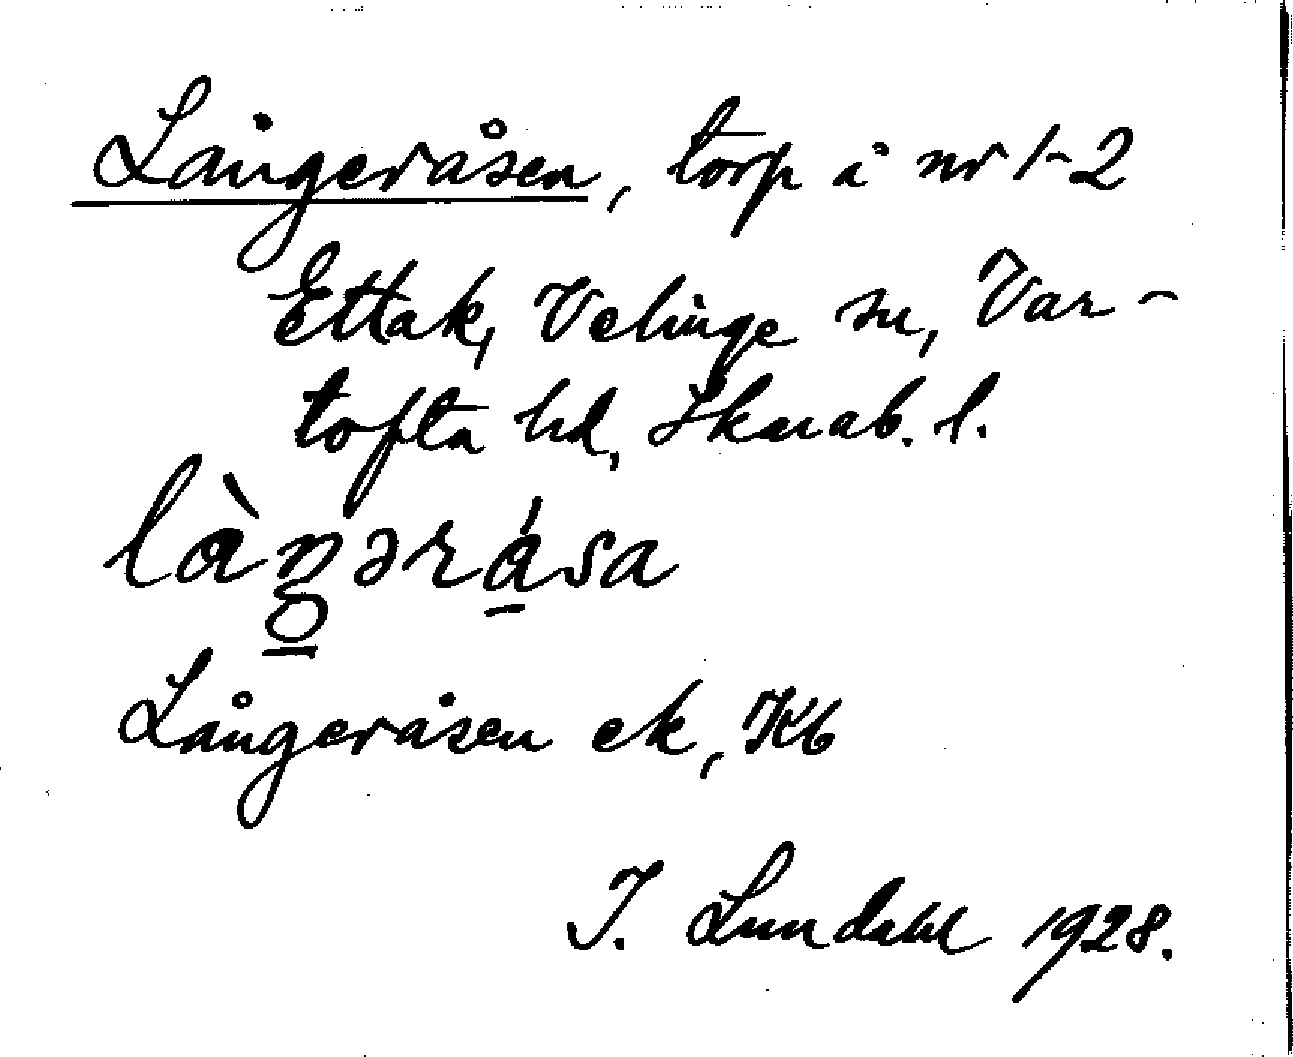 Långeråsen, torp å nr 1-2
Ettak, Velinge sn, Var-
tofta hd, Skarab. l.
làŋərása
Långeråsen ek, Kb
I. Lundahl 1928.